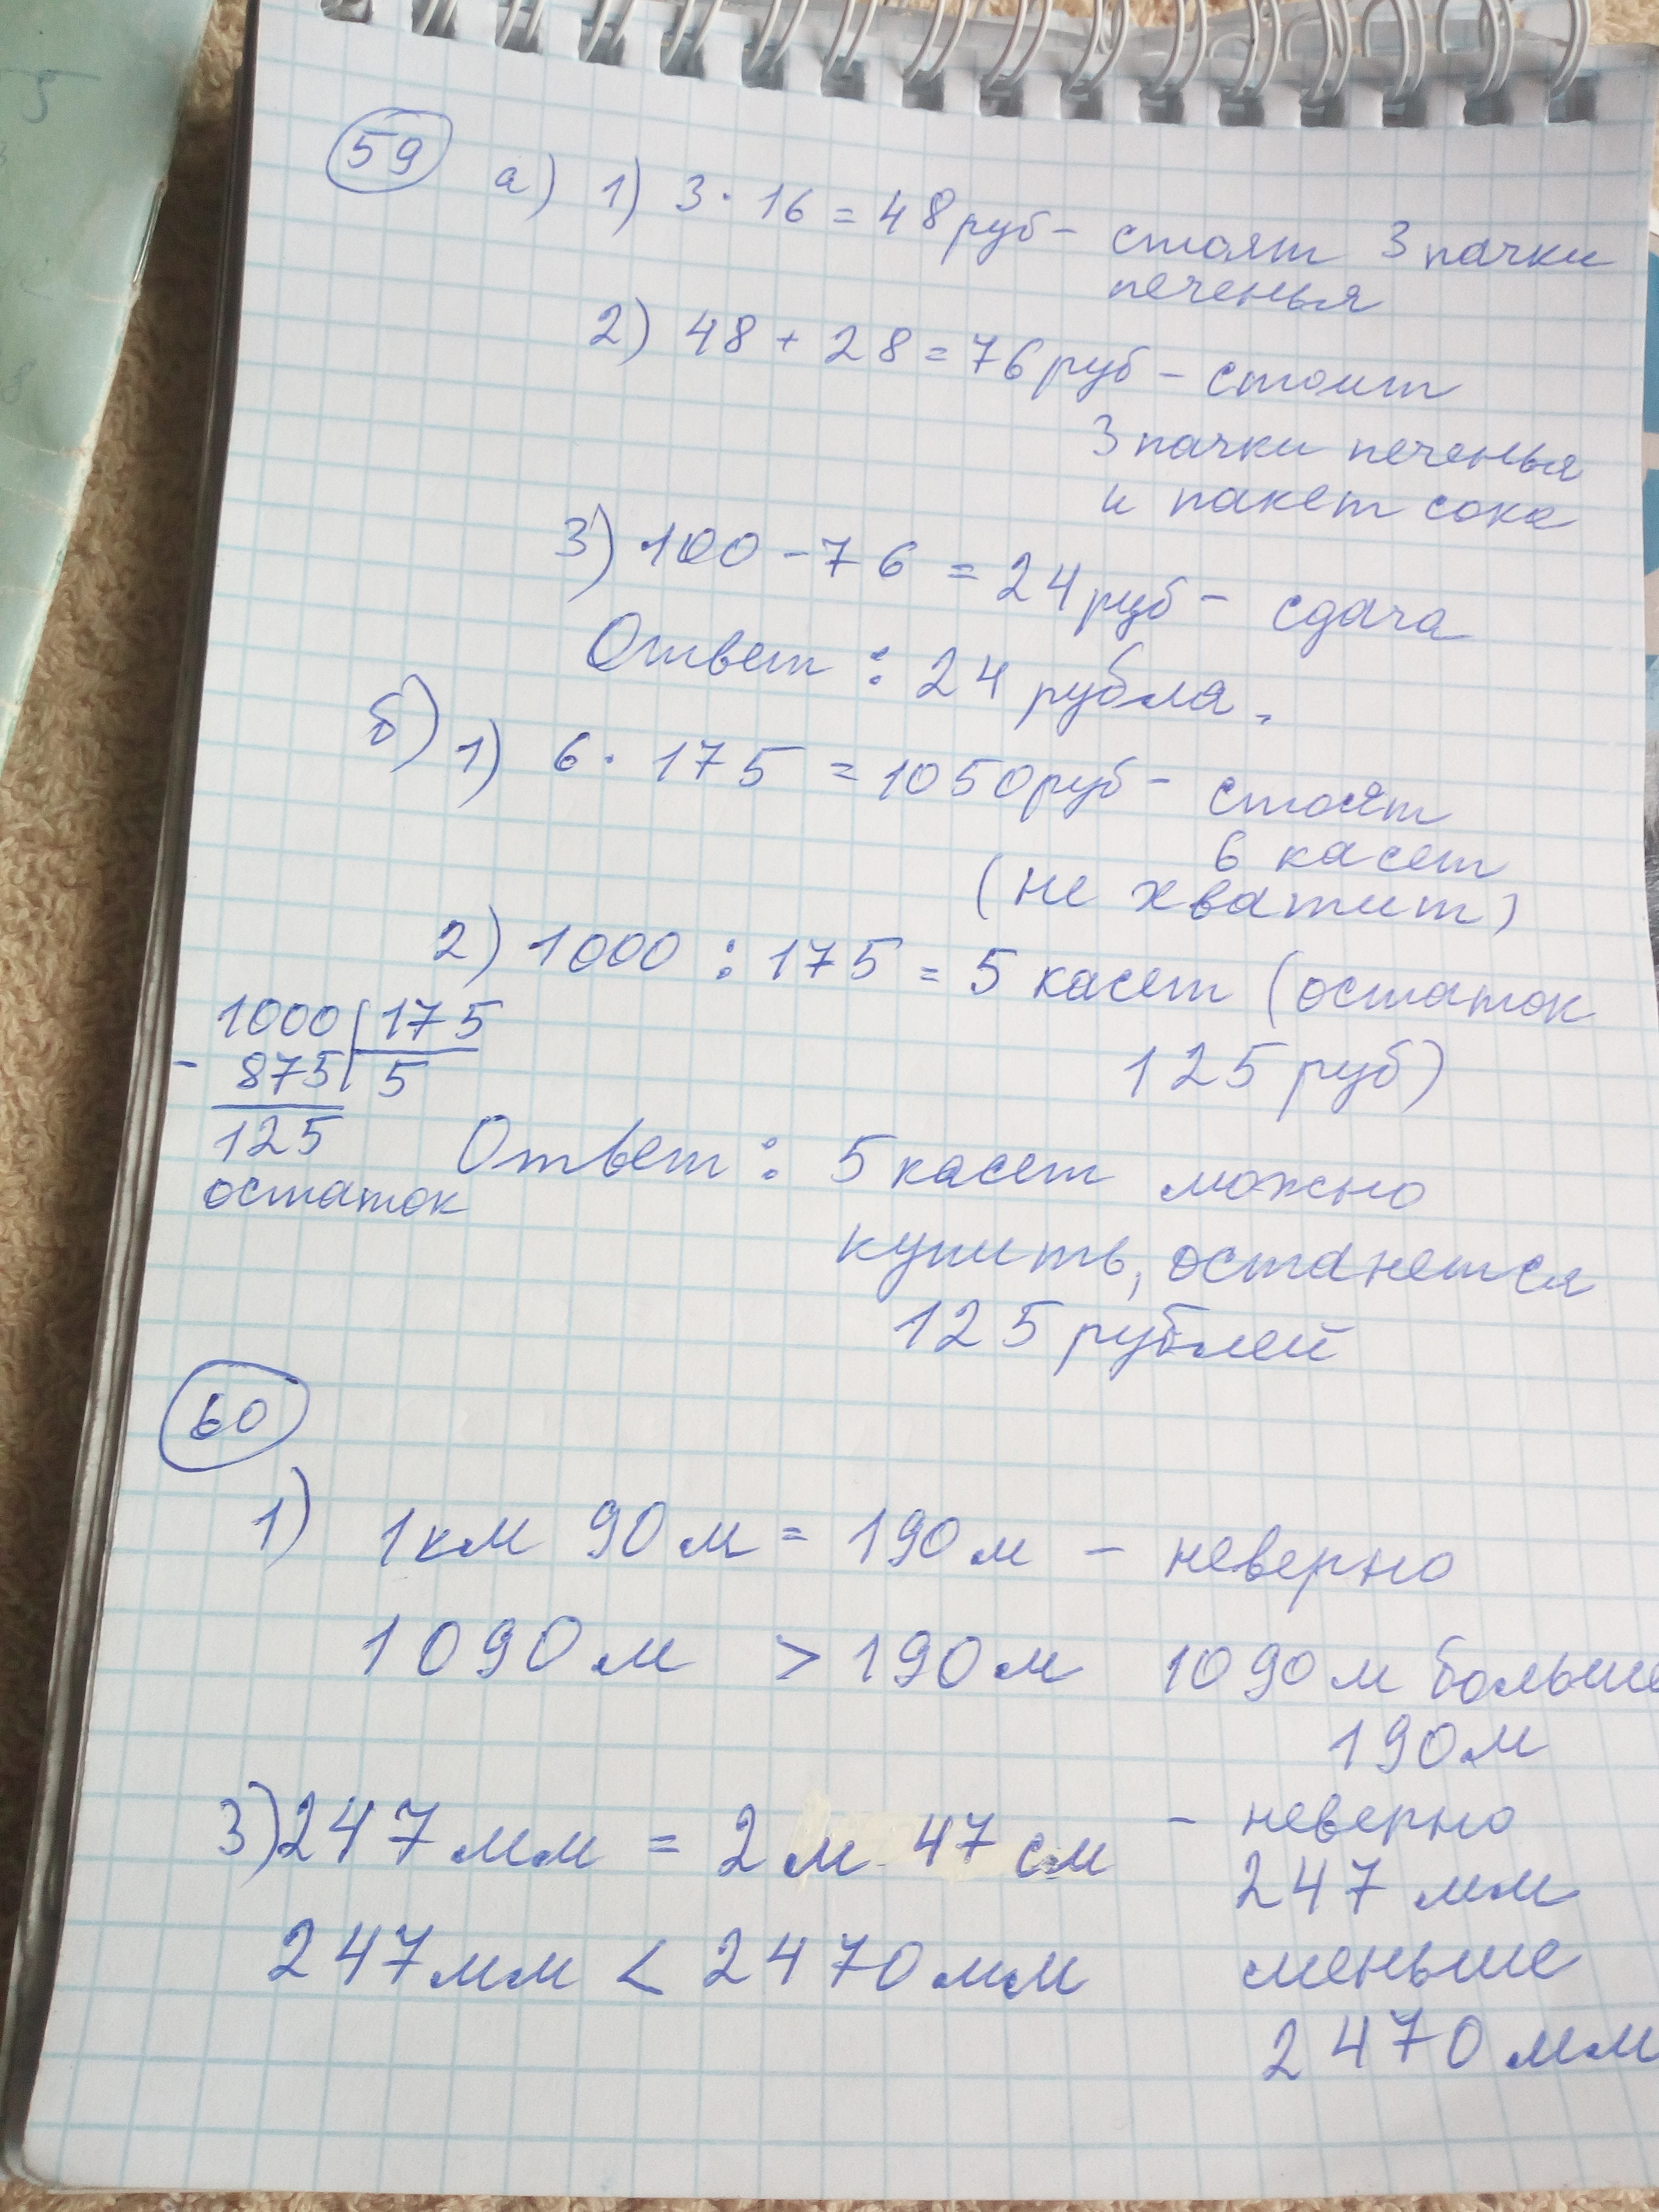 59 а) 1) 3 · 16 = 48 руб - стоят 3 пачки
печенья
2) 48 + 28 = 76 руб - стоит
3 пачки печенья
и пакет сока
3) 100 - 76 = 24 руб - сдача
Ответ : 24 рубля.
б) 1) 6 · 175 = 1050 руб - стоят
6 касет
(не хватит)
2) 1000 : 175 = 5 касет (остаток
125 руб)
1000 | 175
- 875 | 5
125
остаток
Ответ : 5 касет можно
купить, останется
125 рублей
60
1) 1 км 90 м = 190 м - неверно
1090 м > 190 м 1090 м больше
190 м
3) 247 мм = 2 м 47 см - неверно
247 мм
247 мм < 2470 мм меньше
2470 мм